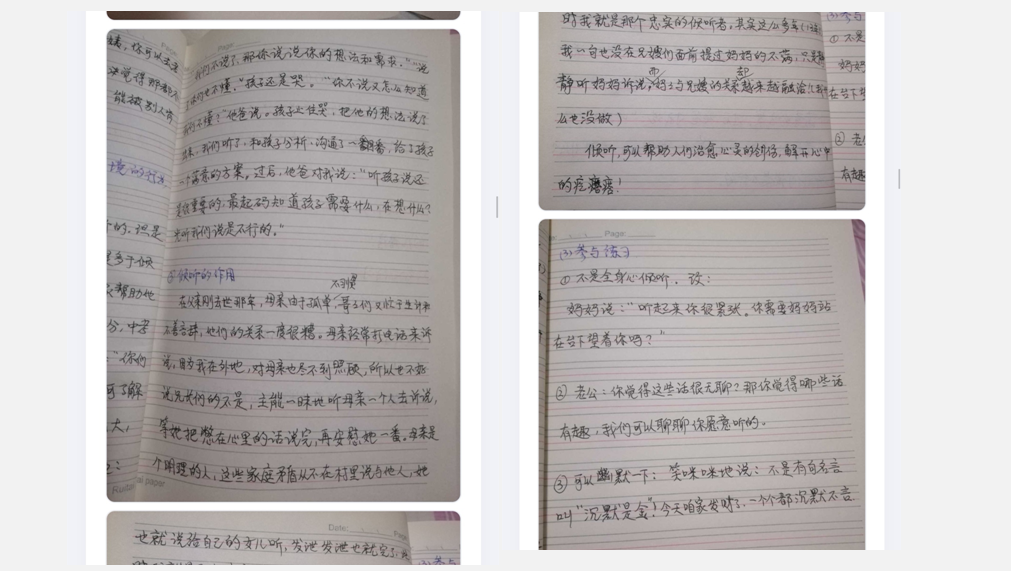 我们不说了，那你说说你的想法和需求。”“说
了你们也不懂。”孩子还是哭。“你不说又怎么知道
我们不懂？”他爸说。孩子止住哭，把他的想法说了
出来，我们听了，和孩子分析、沟通了一番，给了孩子
一个满意的方案。过后，他爸对我说：“听孩子说还
是很重要的，最起码知道孩子需要什么，在想什么？
光听我们说是不行的。”
倾听的作用
不习惯
在父亲刚去世那年，母亲由于孤单，哥子们又忙于生计和
不善言辞，他们的关系一度很糟。母亲经常打电话来诉
说，因为我在外地，对母亲也尽不到照顾，所以也不好
说兄长们的不是，主能一味地听母亲一个人去诉说，
等她把憋在心里的话说完，再安慰她一番。母亲是
个明理的人，这些家庭矛盾从不在村里说与他人，她
也就说给自己的女儿听，发泄发泄也就完了，
时我就是那个忠实的倾听者，其实这么多年
我一句也没在兄嫂们面前提过妈妈的不满，只是
静听妈妈诉说，而妈妈与兄嫂的关系却越来越融洽
么也没做）
倾听，可以帮助人们治愈心灵的创伤，解开心中
的疙瘩！
Page:
(3) 参与练习
① 不是全身心倾听，设：
妈妈说：“听起来你很紧张。你需要妈妈站
在台下望着你吗？”
② 老公：你觉得这些话很无聊？那你觉得哪些话
有趣，我们可以聊聊你愿意听的。
③ 可以幽默一下：笑咪咪地说：不是有句名言
叫“沉默是金”！今天咱家发财了，一个个都沉默不言